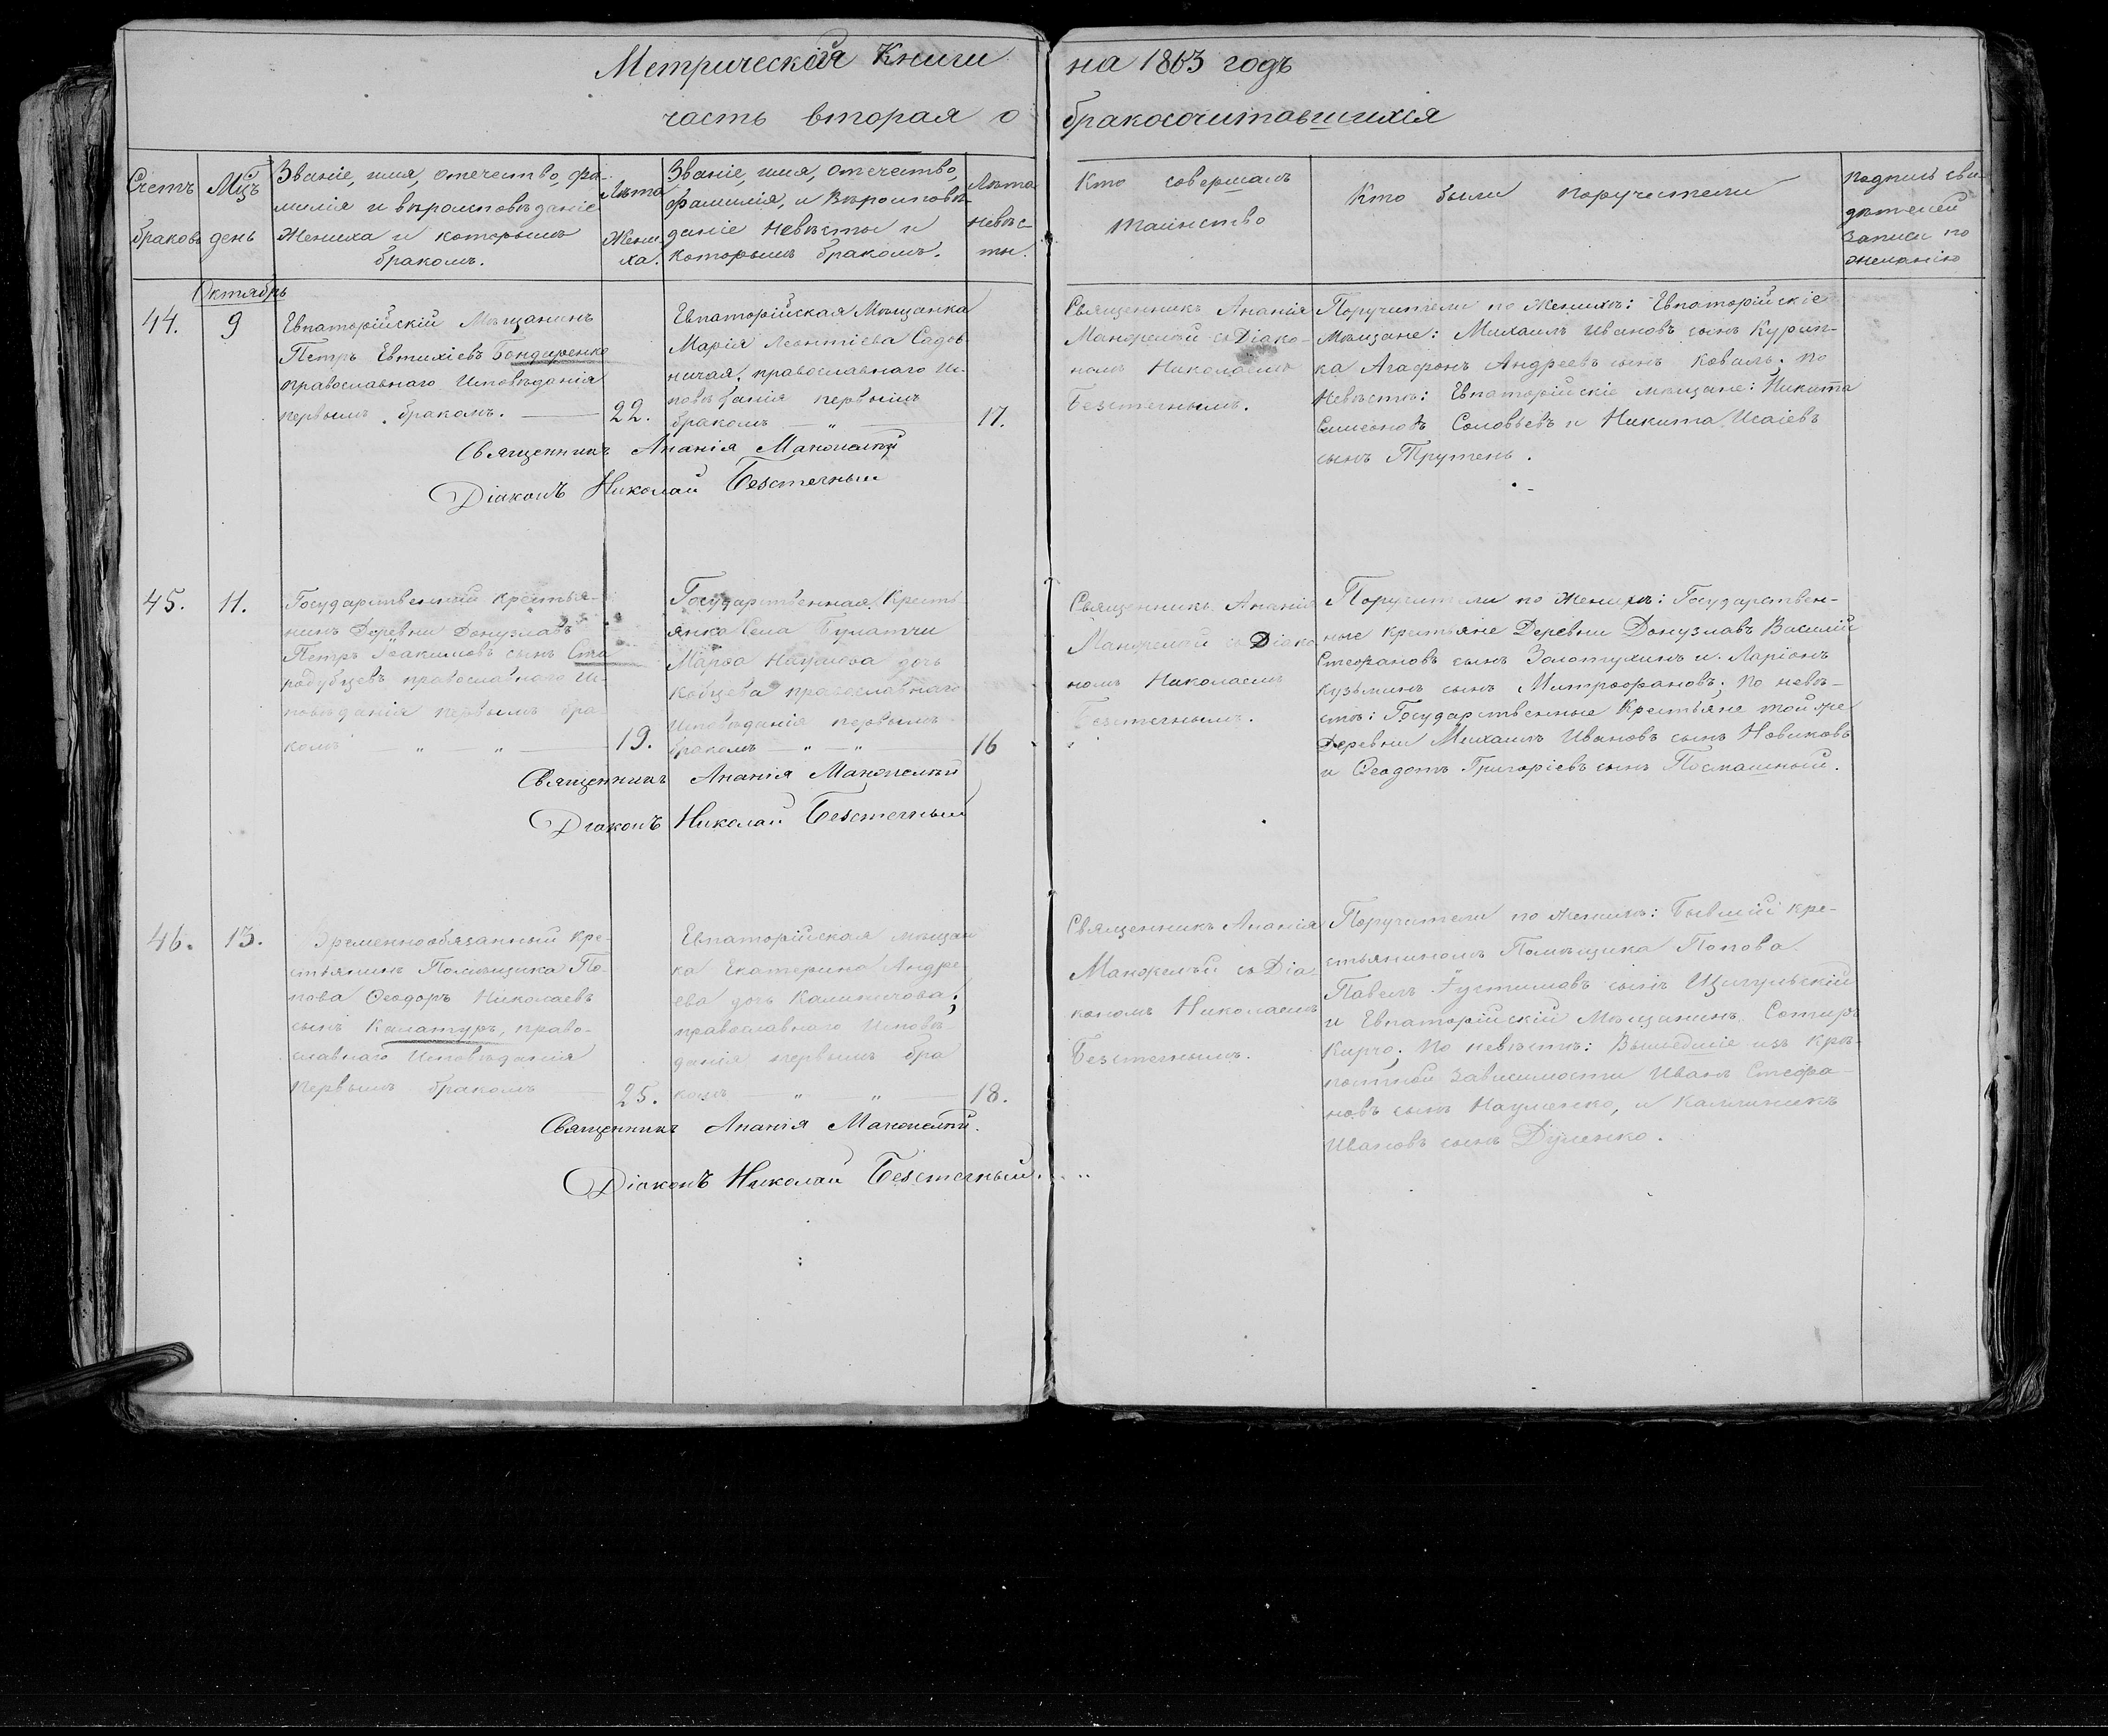 Метрической Книги на 1863 годъ
часть вторая о бракосочитавшихся
Счетъ браковъ
Мцъ день
Званіе, имя, отечество, фа-
милія и вѣроисповѣданіе
Жениха и которымъ
бракомъ.
Лѣта
Жени-
ха.
Званіе, имя, отечество,
фамилія, и Вѣроисповѣ-
даніе Невѣсты и
которымъ бракомъ.
Лѣта
Невѣс-
ты.
Кто совершалъ
таинство
Кто были поручители
подпись сви-
дѣтелей
записи по
желанію
Октябрь
44.
9
Евпаторійскій Мѣщанинъ
Петръ Евтихіевъ Бондаренко
православнаго Исповѣданія
первымъ бракомъ.
22.
Евпаторійская Мѣщанка
Марія Леонтіева Садов-
ничая, православнаго Ис-
повѣданія первымъ
бракомъ — „ —
17.
Священникъ Ананія
съ Діако-
номъ Николаемъ
Безстечнымъ.
Поручители по Женихѣ: Евпаторійскіе
Мѣщане: Михаилъ Ивановъ сынъ Курип-
ка Агафонъ Андреевъ сынъ Коваль; по
Невѣстѣ: Евпаторійскіе мѣщане: Никита
Симеоновъ Соловьевъ и Никита Исаіевъ
сынъ Трутень.
Священникъ Ананія
Діаконъ Николай Безстечный
45.
11.
Государственный крестья-
нинъ Деревни Донузлавъ
Петръ Іоакимовъ сынъ Ста
родубцевъ, православнаго Ис-
повѣданія первымъ бра-
комъ — „ — „ —
19.
Государственная Кресть-
янка Села Булатчи
Марѳа Наумова дочь
Кобцева православнаго
Исповѣданія первымъ
бракомъ — „ — „
16
Священникъ Ананія
съ Діако
номъ Николаемъ
Безстечнымъ.
Поручители по Женихѣ: Государствен-
ные крестьяне Деревни Донузлавъ Василій
Стефановъ сынъ Золотухинъ и Ларіонъ
Кузьминъ сынъ Митрофановъ; по невѣ-
стѣ: Государственные Крестьяне той же
Деревни Михаилъ Ивановъ сынъ Новиковъ
и Ѳеодотъ Григоріевъ сынъ Посмашный.
Священникъ Ананія
Діаконъ Николай Безстечный
46.
13.
Временнообязанный кре-
стьянинъ Помѣщика По-
пова Ѳеодоръ Николаевъ
сынъ Калатуръ, право-
славнаго Исповѣданія
первымъ бракомъ —
25.
Евпаторійская мѣщан
ка Екатерина Андре
ева дочь Калиничова;
православнаго Исповѣ-
данія первымъ бра
комъ — „ „ —
18.
Священникъ Ананія
съ Діа
кономъ Николаемъ
Безстечнымъ.
Поручители по женихѣ: Бывшій кре-
стьяниномъ Помѣщика Попова
Павелъ Іустиновъ сынъ Щигульскій
и Евпаторійскій Мѣщанинъ Сотиръ
Кирчо; по невѣстѣ: Вышедшіе изъ крѣ-
постной зависимости Иванъ Стефа-
новъ сынъ Науменко, и Каллиникъ
Ивановъ сынъ Дуленко.
Священникъ Ананія
Діаконъ Николай Безстечный.